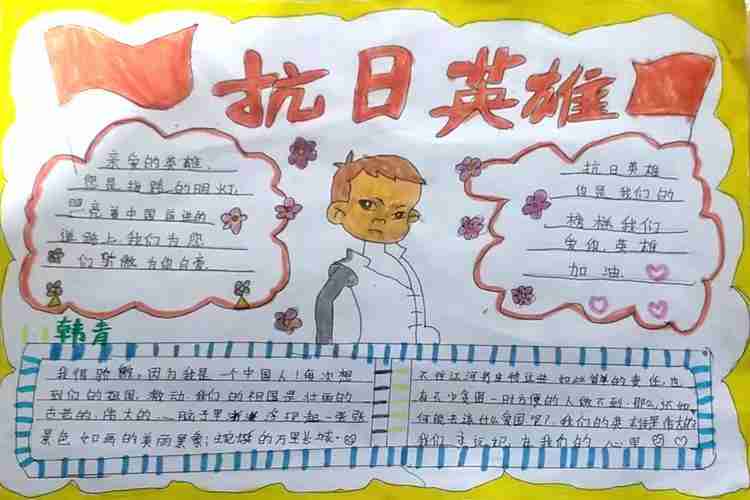 抗日英雄
亲爱的英雄,
您是指路的明灯,
照亮着中国前进的
道路上,我们为您
们骄傲为您自豪
抗日英雄
你是我们的
榜样我们
爱你,英雄
加油
韩青
我很骄傲,因为我是一个中国人!每次想
到们的祖国,激动,我们的祖国是壮丽的
古老的,伟大的,一脑子里就浮现起一张张
景色如画的美丽景象;蜿蜒的万里长城。
如此简单的责任,也
有不少贪图一时方便的人做不到,那么
何能去谈什么爱国呢?我们的英雄是伟大的
我们